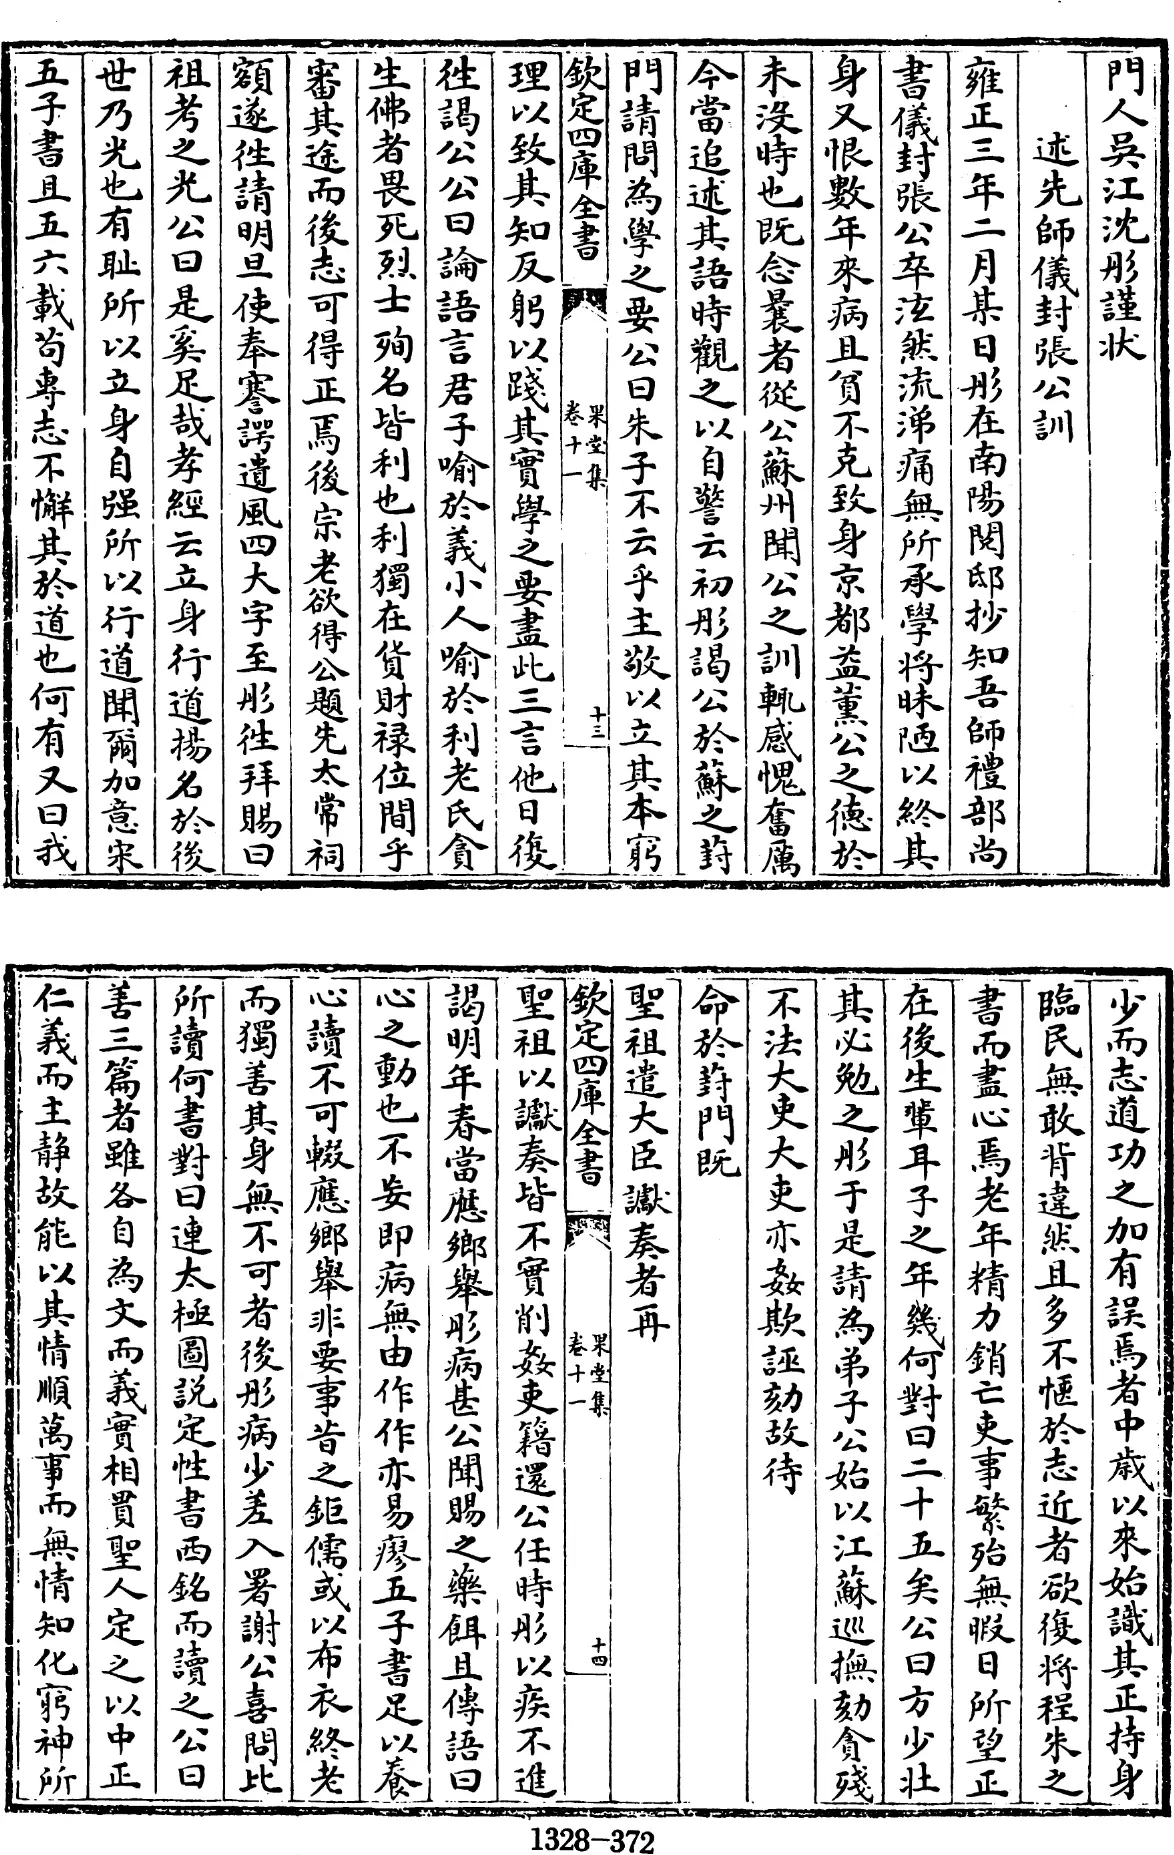 門人吳江沈彤謹状
述先師儀封張公訓
雍正三年二月某日彤在南陽閱邸抄知吾師禮部尚
書儀封張公卒泫然流涕痛無所承學将昧陋以終其
身又恨數年來病且貧不克致身京都益薰公之徳於
未沒時也既念曩者從公蘇州聞公之訓輒感愧奮厲
今當追述其語時觀之以自警云初彤謁公於蘇之葑
門請問為學之要公曰朱子不云乎主敬以立其本窮
欽定四庫全書
果堂集
卷十一
十三
理以致其知反躬以踐其實學之要盡此三言他日復
徃謁公公曰論語言君子喻於義小人喻於利老氏貪
生佛者畏死烈士殉名皆利也利獨在貨財禄位間乎
審其途而後志可得正焉後宗老欲得公題先太常祠
額遂徃請明旦使奉謇諤遺風四大字至彤徃拜賜曰
祖考之光公曰是奚足哉孝經云立身行道揚名於後
世乃光也有耻所以立身自强所以行道聞爾加意宋
五子書且五六載茍專志不懈其於道也何有又曰我
少而志道功之加有誤焉者中歳以來始識其正持身
臨民無敢背違然且多不愜於志近者欲復将程朱之
書而盡心焉老年精力銷亡吏事繁殆無暇日所望正
在後生輩耳子之年幾何對曰二十五矣公曰方少壮
其必勉之彤于是請為弟子公始以江蘇巡撫劾貪殘
不法大吏大吏亦姦欺誣劾故待
命於葑門既
聖祖遣大臣讞奏者再
欽定四庫全書
果堂集
卷十一
十四
聖祖以讞奏皆不實削姦吏籍還公任時彤以疾不進
謁明年春當應鄉舉彤病甚公聞賜之藥餌且傳語曰
心之動也不妄即病無由作作亦易瘳五子書足以養
心讀不可輟應鄉舉非要事昔之鉅儒或以布衣終老
而獨善其身無不可者後彤病少差入署謝公喜問比
所讀何書對曰連太極圖説定性書西銘而讀之公曰
善三篇者雖各自為文而義實相貫聖人定之以中正
仁義而主靜故能以其情順萬事而無情知化窮神所
1328-372